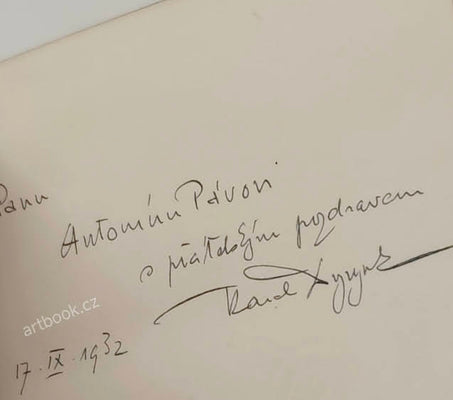 Panu
Antonínu Pávovi
s přátelským pozdravem
Karel
17.IX.1932
artbook.cz